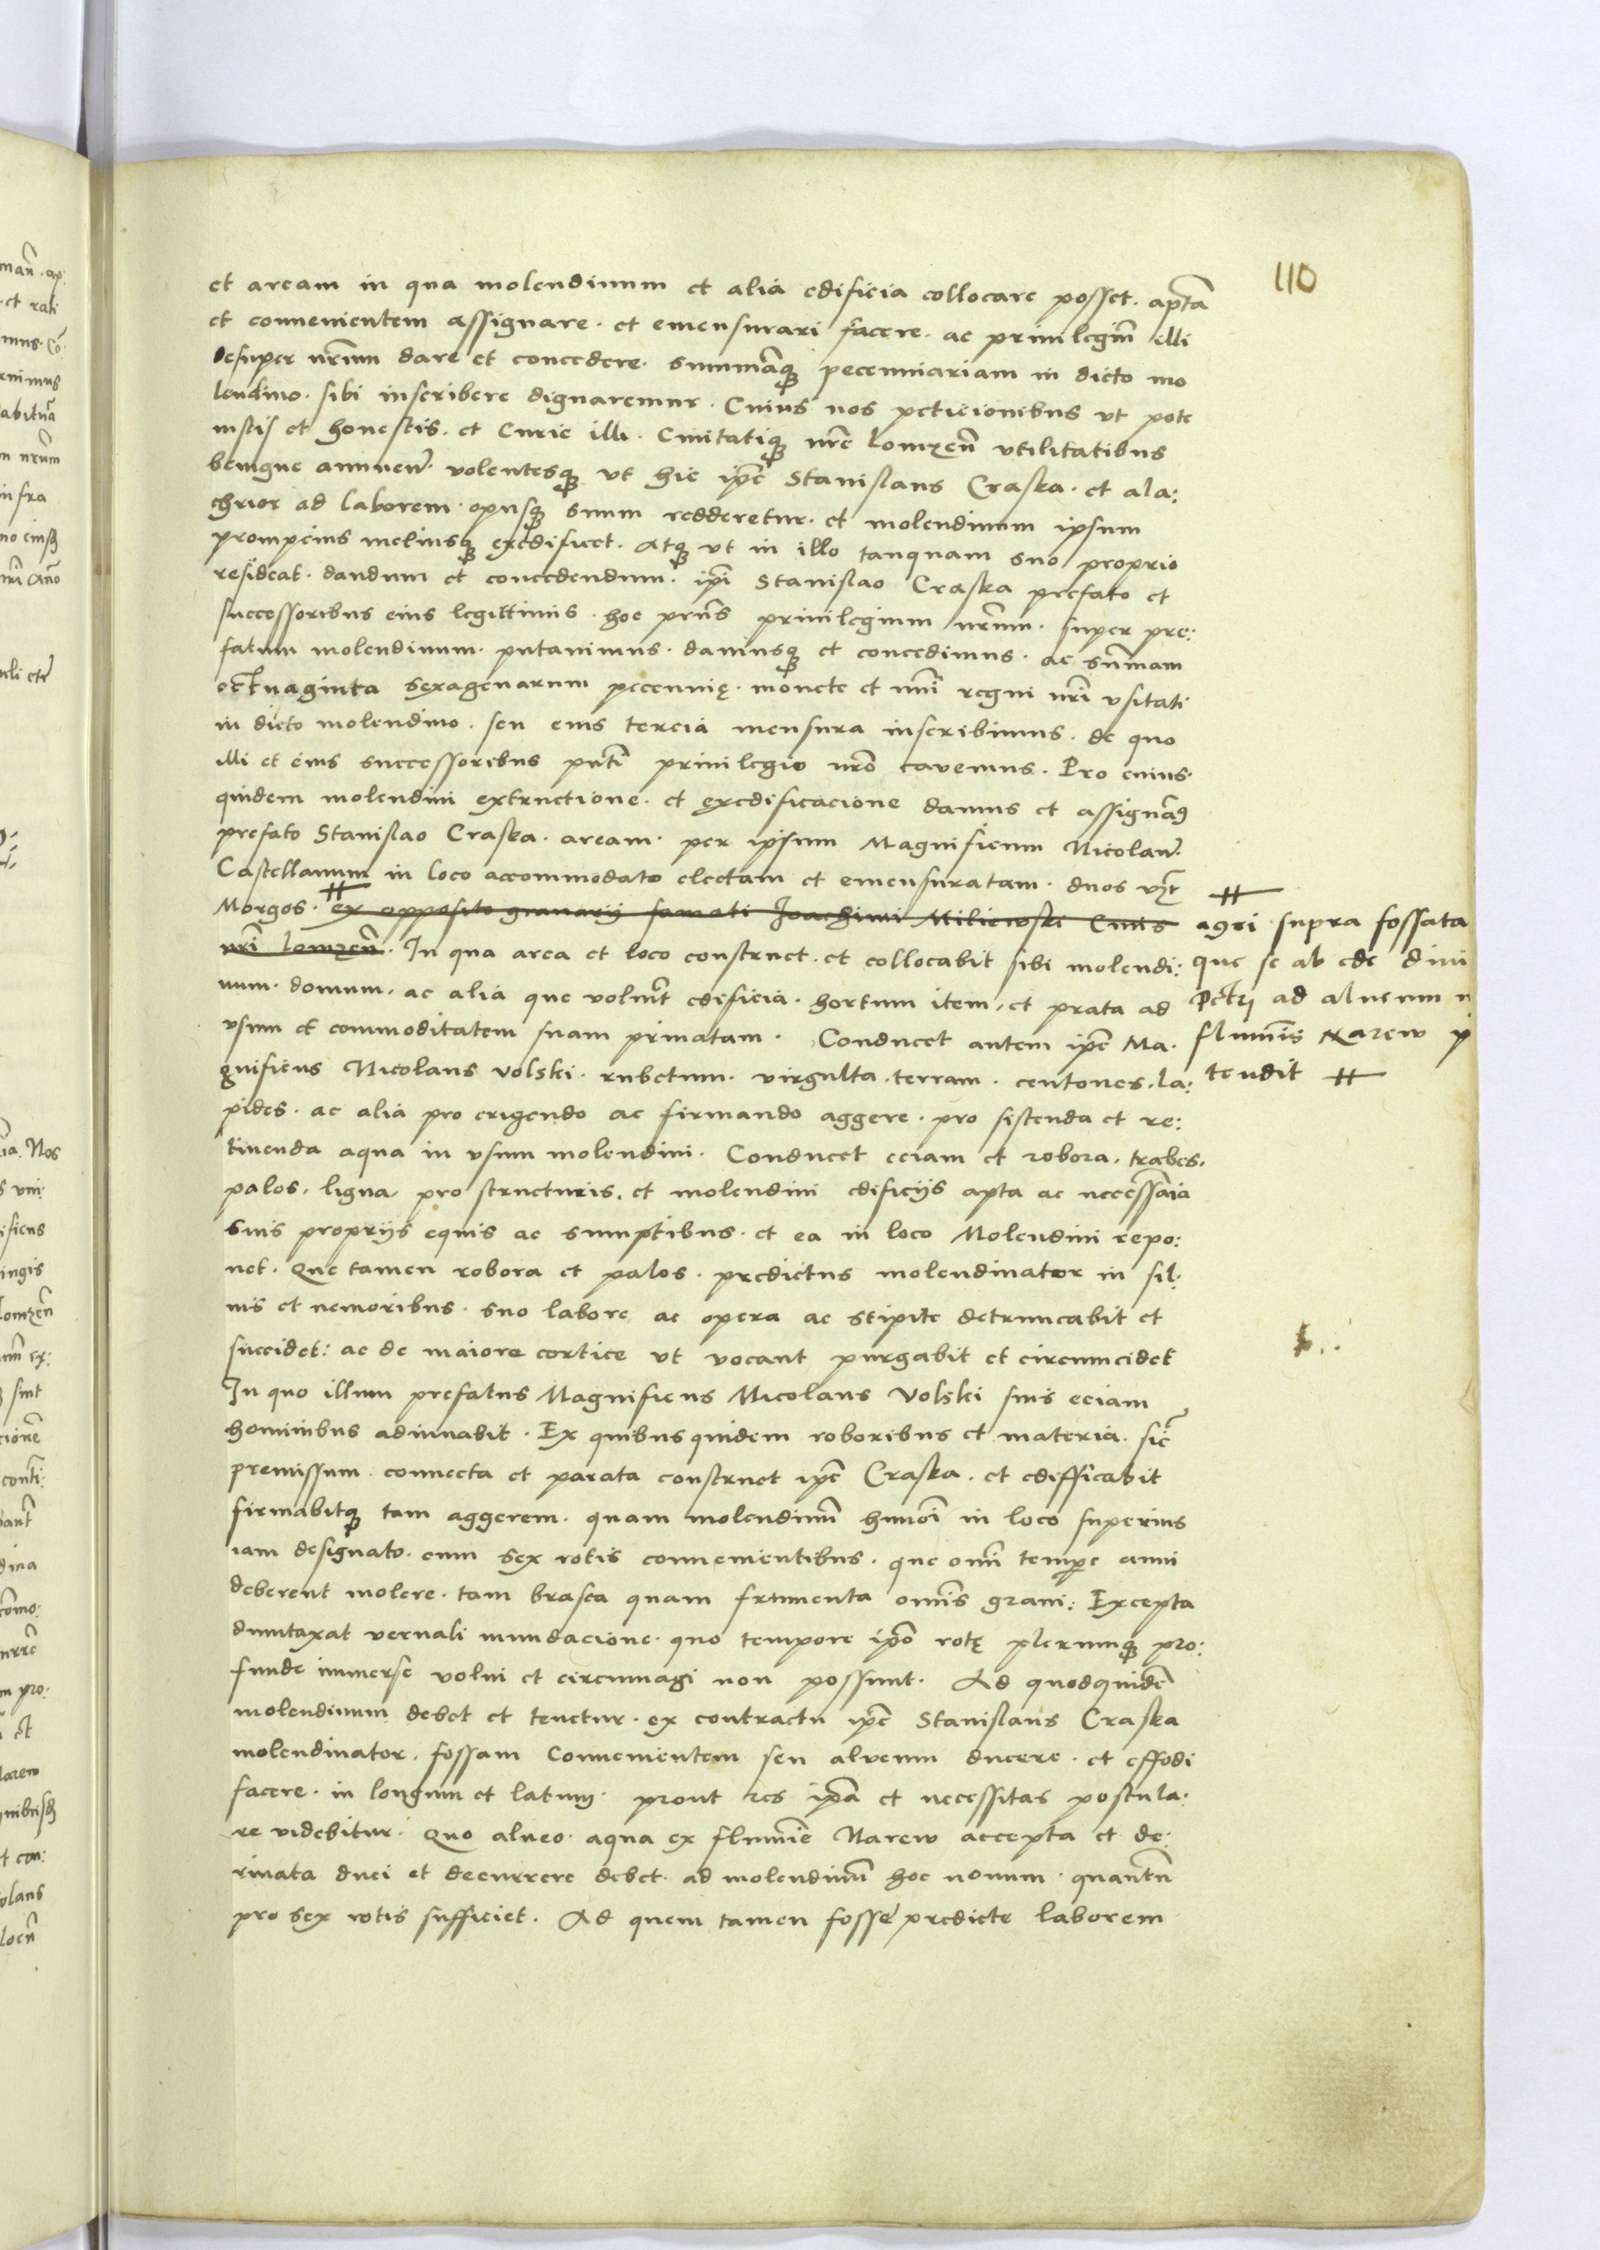 110
et aream in qua molendinum et alia edificia collocare posset. aptā
et convenientem assignare. et emensurari facere. ac privilegiū illi
desuper nr̄um dare et concedere. summāq; pecenniariam in dicto mo
lendino. sibi inscribere dignaremur. Cuius nos peticionibus ut pote
iustis et honestis. et Curie illi. Civitatiq; nr̄e Lomzeñ utilitatibus
benigne annuen̄. volentesq; ut hic ip̄e Stanislaus Craska. et ala:
chrior ad laborem. opusq; suum redderetur. et molendinum ipsum
prompcius meliusq; exedificet. Atq; ut in illo tanquam suo proprio
resideat. dandum et concedendum. ip̄i Stanislao Craska prefato et
successoribus eius legittimis. hoc pr̄ns privilegium nr̄um. super pre:
fatum molendinum. putavimus. damusq; et concedimus. ac sūmam
octuaginta sexagenarum pecennię. monete et nūi regni nr̄i usitati
in dicto molendino. seu eius tercia mensura inscribimus. de quo
illi et eius successoribus pn̄ti privilegio nr̄o cavemus. Pro cuius.
quidem molendini extructione. et exedificacione damus et assignam9
prefato Stanislao Craska. aream. per ipsum Magnificum Nicolaum̄.
Castellanum in loco accommodato electam et emensuratam. duos vꝫt
Morgos. # ex opposito granarij famati Joachimi Milicowski Civis
nr̄i Lomzen̄. In qua area et loco construet. et collocabit sibi molendi:
num. domum. ac alia que volu̅it edificia. hortum item, et prata ad
usum et commoditatem suam privatam. Conducet autem ip̄e Ma.
gnificus Nicolaus Volski. rubetum. virgulta. terram. centones. la:
pides. ac alia pro erigendo ac firmando aggere. pro sistenda et re:
tinenda aqua in usum molendini. Conducet eciam et robora, trabes.
palos, ligna pro structuris. et molendini edificijs apta ac necess̄aia
suis proprijs equis ac sumptibus. et ea in loco Molendini repo:
net. que tamen robora et palos. predictus molendinator in sil.
vis et nemoribus. suo labore ac opera ac stipite detruncabit et
succidet: ac de maiore cortice ut vocant purgabit et circumcidet
In quo illum prefatus Magnificus Nicolaus Volski suis eciam
hominibus adiuvabit. Ex quibus quidem roboribus et materia. sic̄
premissum. connecta et parata construet ip̄e Craska. et edifficabit
firmabitq; tam aggerem. quam molendinū hmōi in loco superius
iam designato. cum sex rotis convenientibus. que omi̅ tempe̅ anni
deberent molere. tam brasea quam frumenta omi̅s grani: Excepta
dumtaxat vernali inundacione. quo tempore ip̄e rotę plerumq; pro:
funde immerse volui et circumagi non possunt. Ad quodquidē
molendinum debet et tenetur. ex contractu ip̄e Stanislaus Craska
molendinator. fossam Convenientem seu alveum ducere. et effodi
facere. in longum et latum. prout res ip̄a et necessitas postula.
re videbitur. Quo alveo. aqua ex flumi̅e Narew accepta et de:
rivata duci et decurrere debet. ad molendinū hoc novum. quantū
pro sex rotis sufficiet. Ad quem tamen fosse predicte laborem
#
agri supra fossata
que se ab ede divi
Petri ad alveum
flumi̅s Narew
tendit #